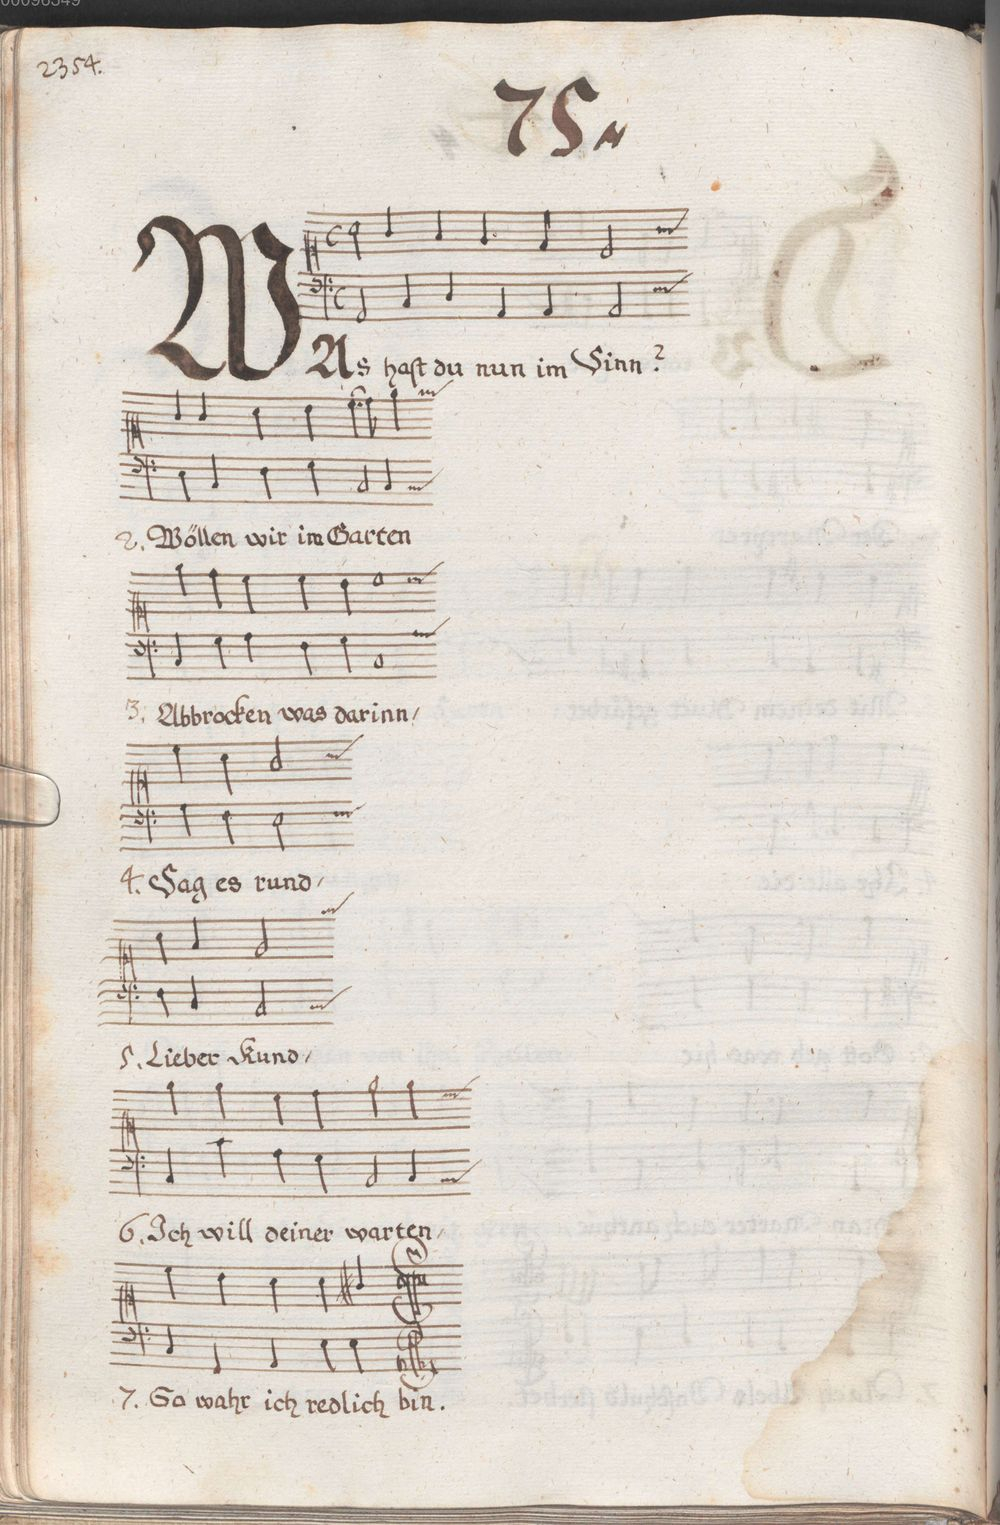 00096549
2354.
75
WAs hast du nun im Sinn?
2. Wöllen wir im Garten
3. Abbrocken was darinn/
4. Sag es rund/
5. Lieber Kund/
6. Ich will deiner warten/
7. So wahr ich redlich bin.